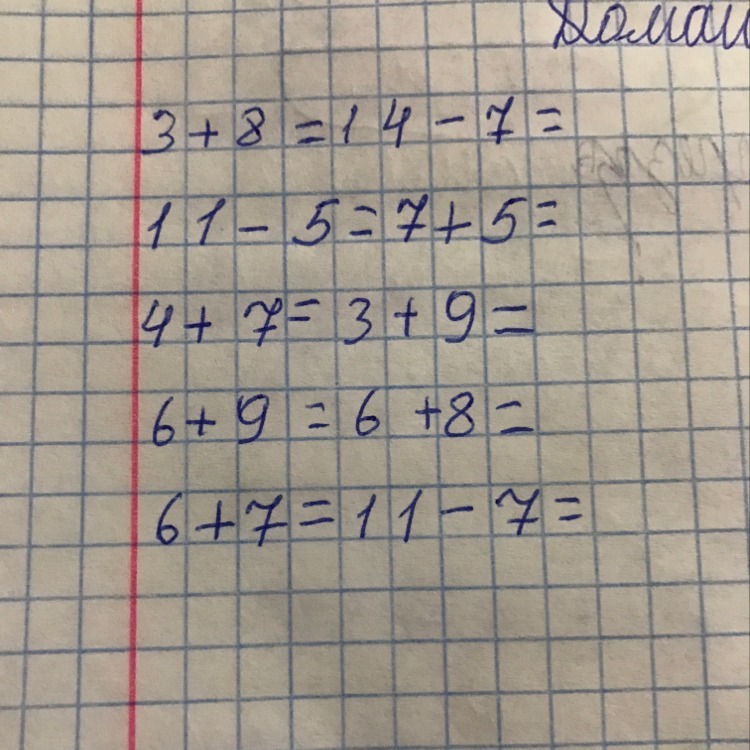 3 + 8 = 14 - 7 =
11 - 5 = 7 + 5 =
4 + 7 = 3 + 9 =
6 + 9 = 6 + 8 =
6 + 7 = 11 - 7 =